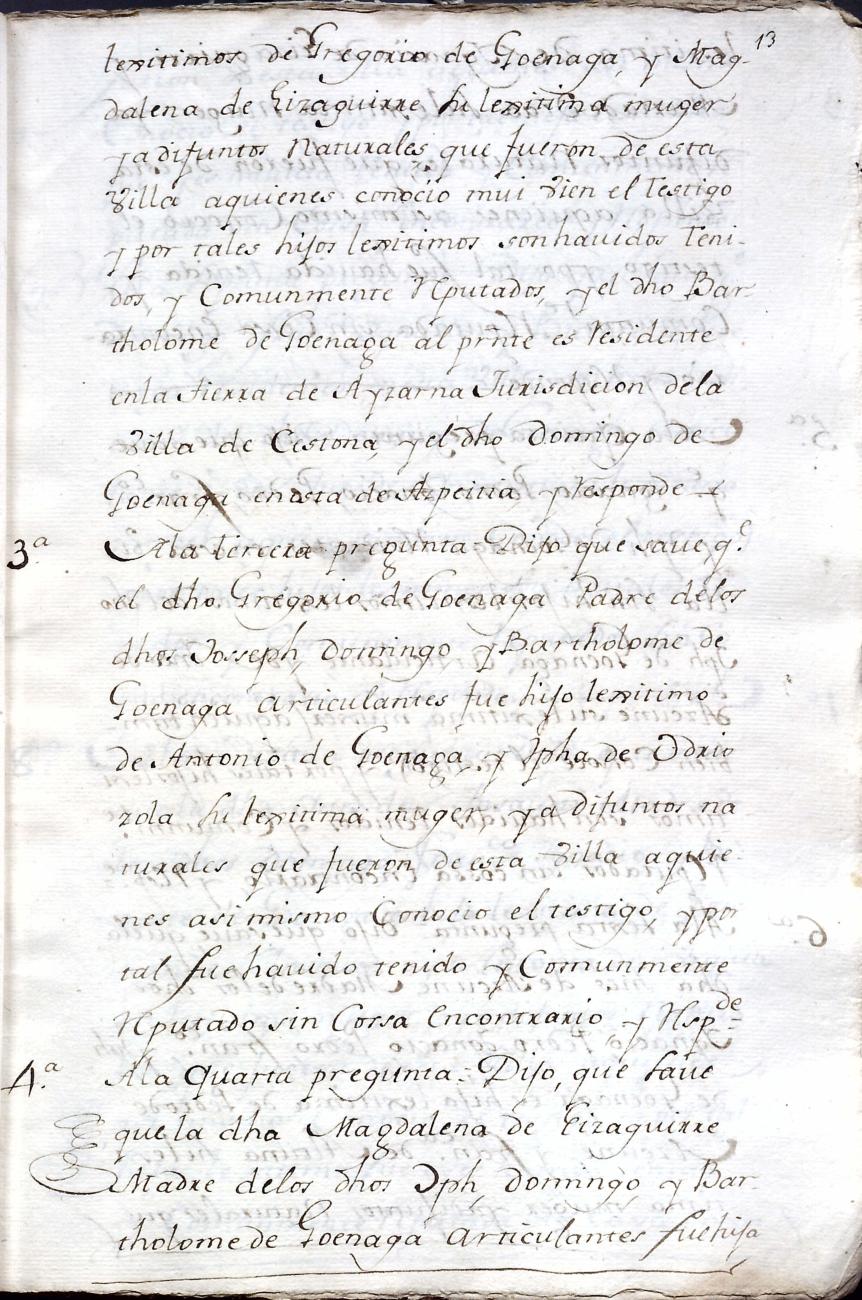 13
lexitimos de Gregorio de Goenaga, y Mag-
dalena de Eizaguirre su lexitima muger
ya difuntos Naturales que fueron de esta
Villa aquienes conocio mui vien el testigo
y por tales hijos lexitimos son havidos teni-
dos, y Comunmente Rputados, y el dho Bar-
tholome de Goenaga al prnte es Residente
enla tierra de Ayzarna Jurisdicion dela
Villa de Cestona, y el dho Domingo de
Goenaga en esta de Azpeitia, y Responde
3.ª Ala tercera pregunta = Dijo que save, q.e
el dho Gregorio de Goenaga Padre delos
dhos Joseph, Domingo y Bartholome de
Goenaga Articulantes fue hijo lexitimo
de Antonio de Goenaga, y Jpha de Odrio
zola su lexitima muger, ya difuntos na
turales que fueron de esta Villa aquie-
nes asi mismo Conocio el testigo, y por
tal fue havido tenido y Comunmente
Rputado sin Cossa Encontrario y Rsp.de =
4.ª Ala Quarta pregunta = Dijo, que save
que la dha Magdalena de Eizaguirre
Madre delos dhos Jph, Domingo, y Bar-
tholome de Goenaga Articulantes fue hija